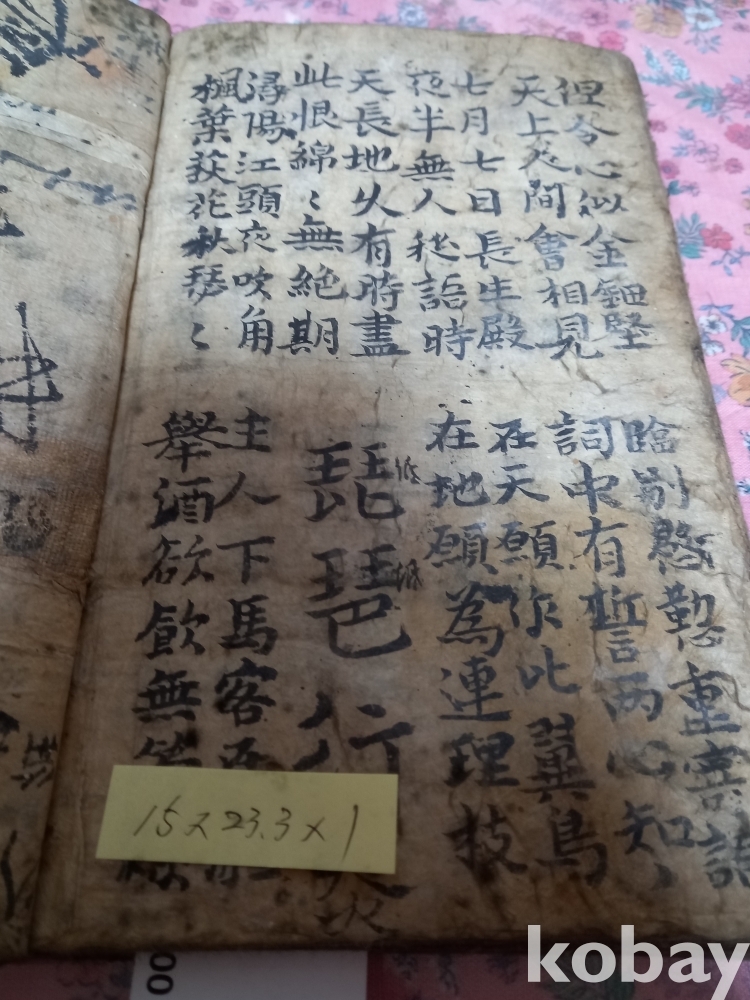 但令心似金鈿堅
天上人間會相見
臨別慇懃重寄語
詞中有誓兩心知
七月七日長生殿
夜半無人私語時
在天願作比翼鳥
在地願為連理技
天長地久有時盡
此恨綿〻無絕期
琵琶行
潯陽江頭夜吹角
楓葉荻花秋瑟〻
主人下馬客
舉酒欲飮無
15 x 23.3 x 1
kobay